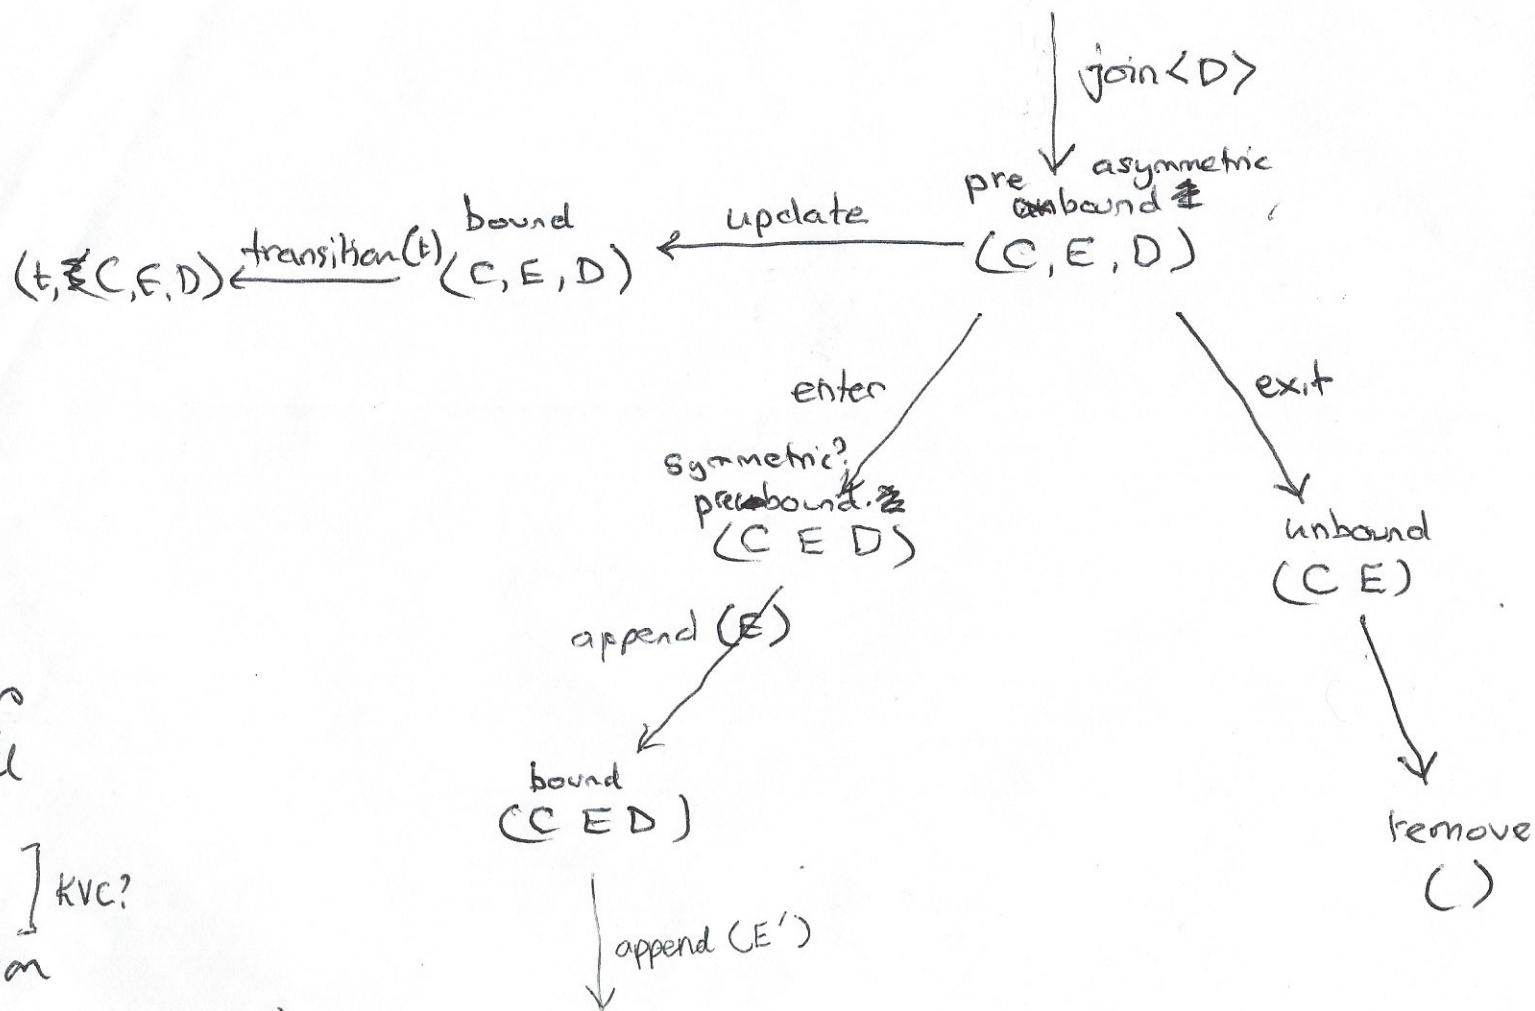 join<D>
asymmetric
pre bound
(C, E, D)
update
bound
(C, E, D)
transition(t)
(t, (C, E, D)
enter
exit
symmetric?
prebound.
(C E D)
unbound
(C E)
append (E)
bound
(C E D)
remove
( )
] KVC?
append (E')